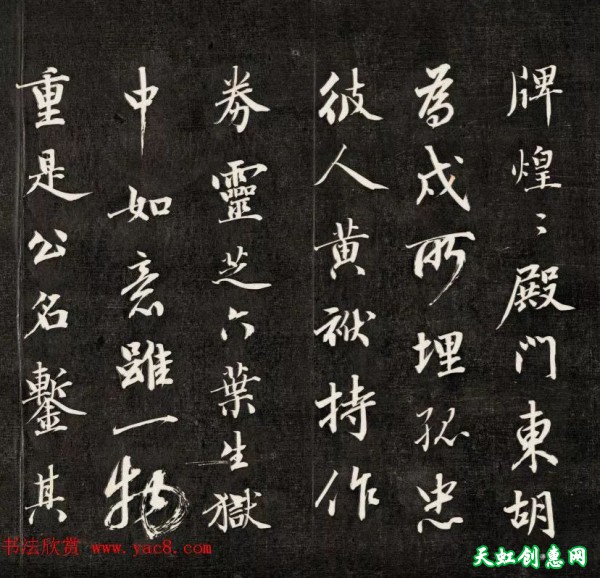 牌煌〻殿門東胡
為成所埋孤忠
彼人黄袱持作
券靈芝六葉生獄
中如意雖一物
重是公名鏨其
书法欣赏 www.yac8.com
天虹创惠网